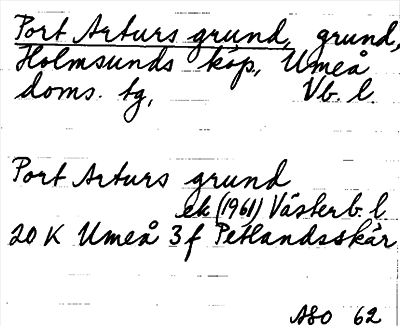 Port Arturs grund, grund,
Holmsunds köp, Umeå
doms. tg, Vb. l.
Port Arturs grund
ek (1961) Västerb. l
20 K Umeå 3 f Petlandsskär
ASO 62